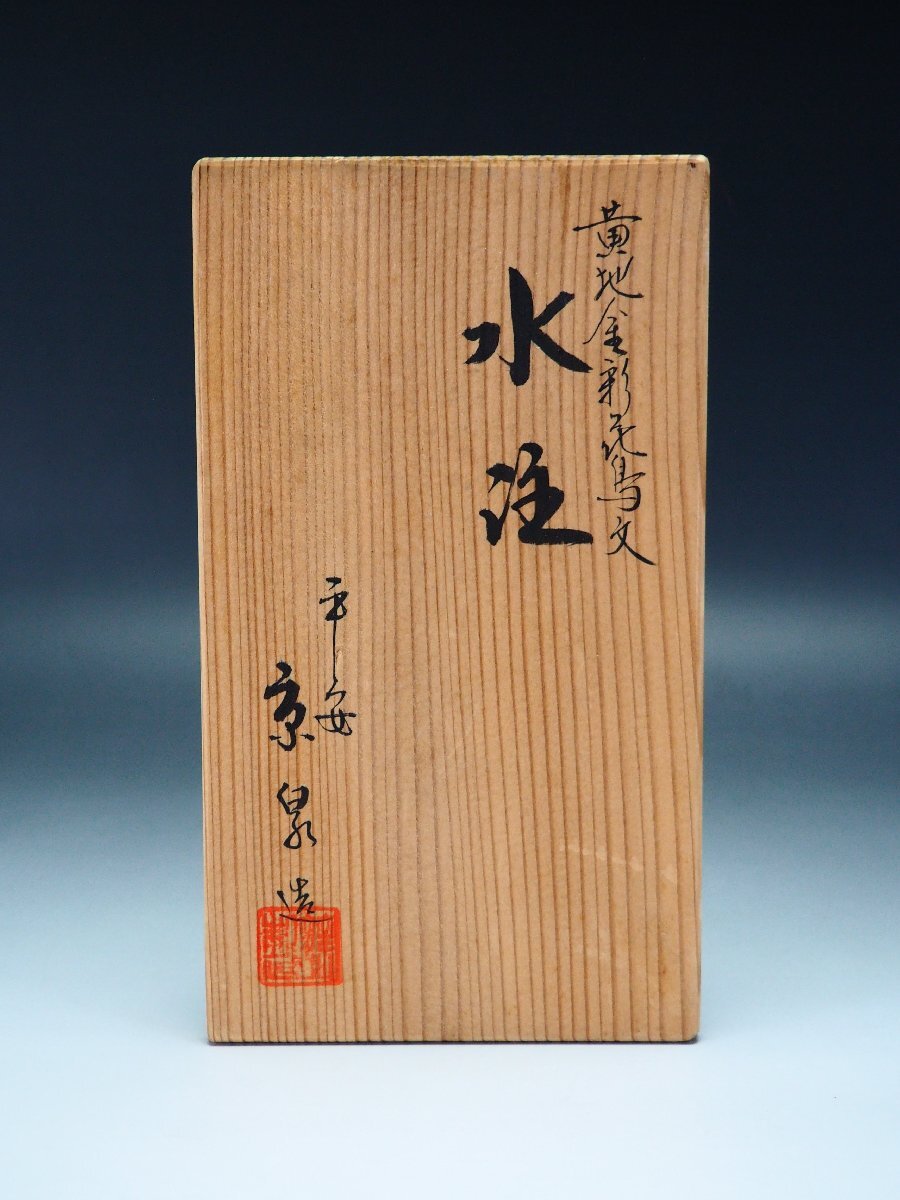 黄地金彩花鳥文
水注
平安
京泉造